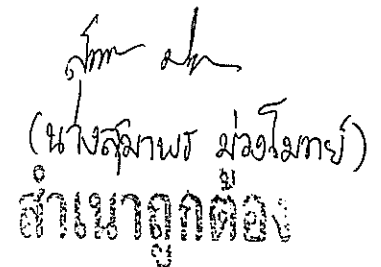 (นางสุมาพร ม่วงโมทย์)
สำเนาถูกต้อง